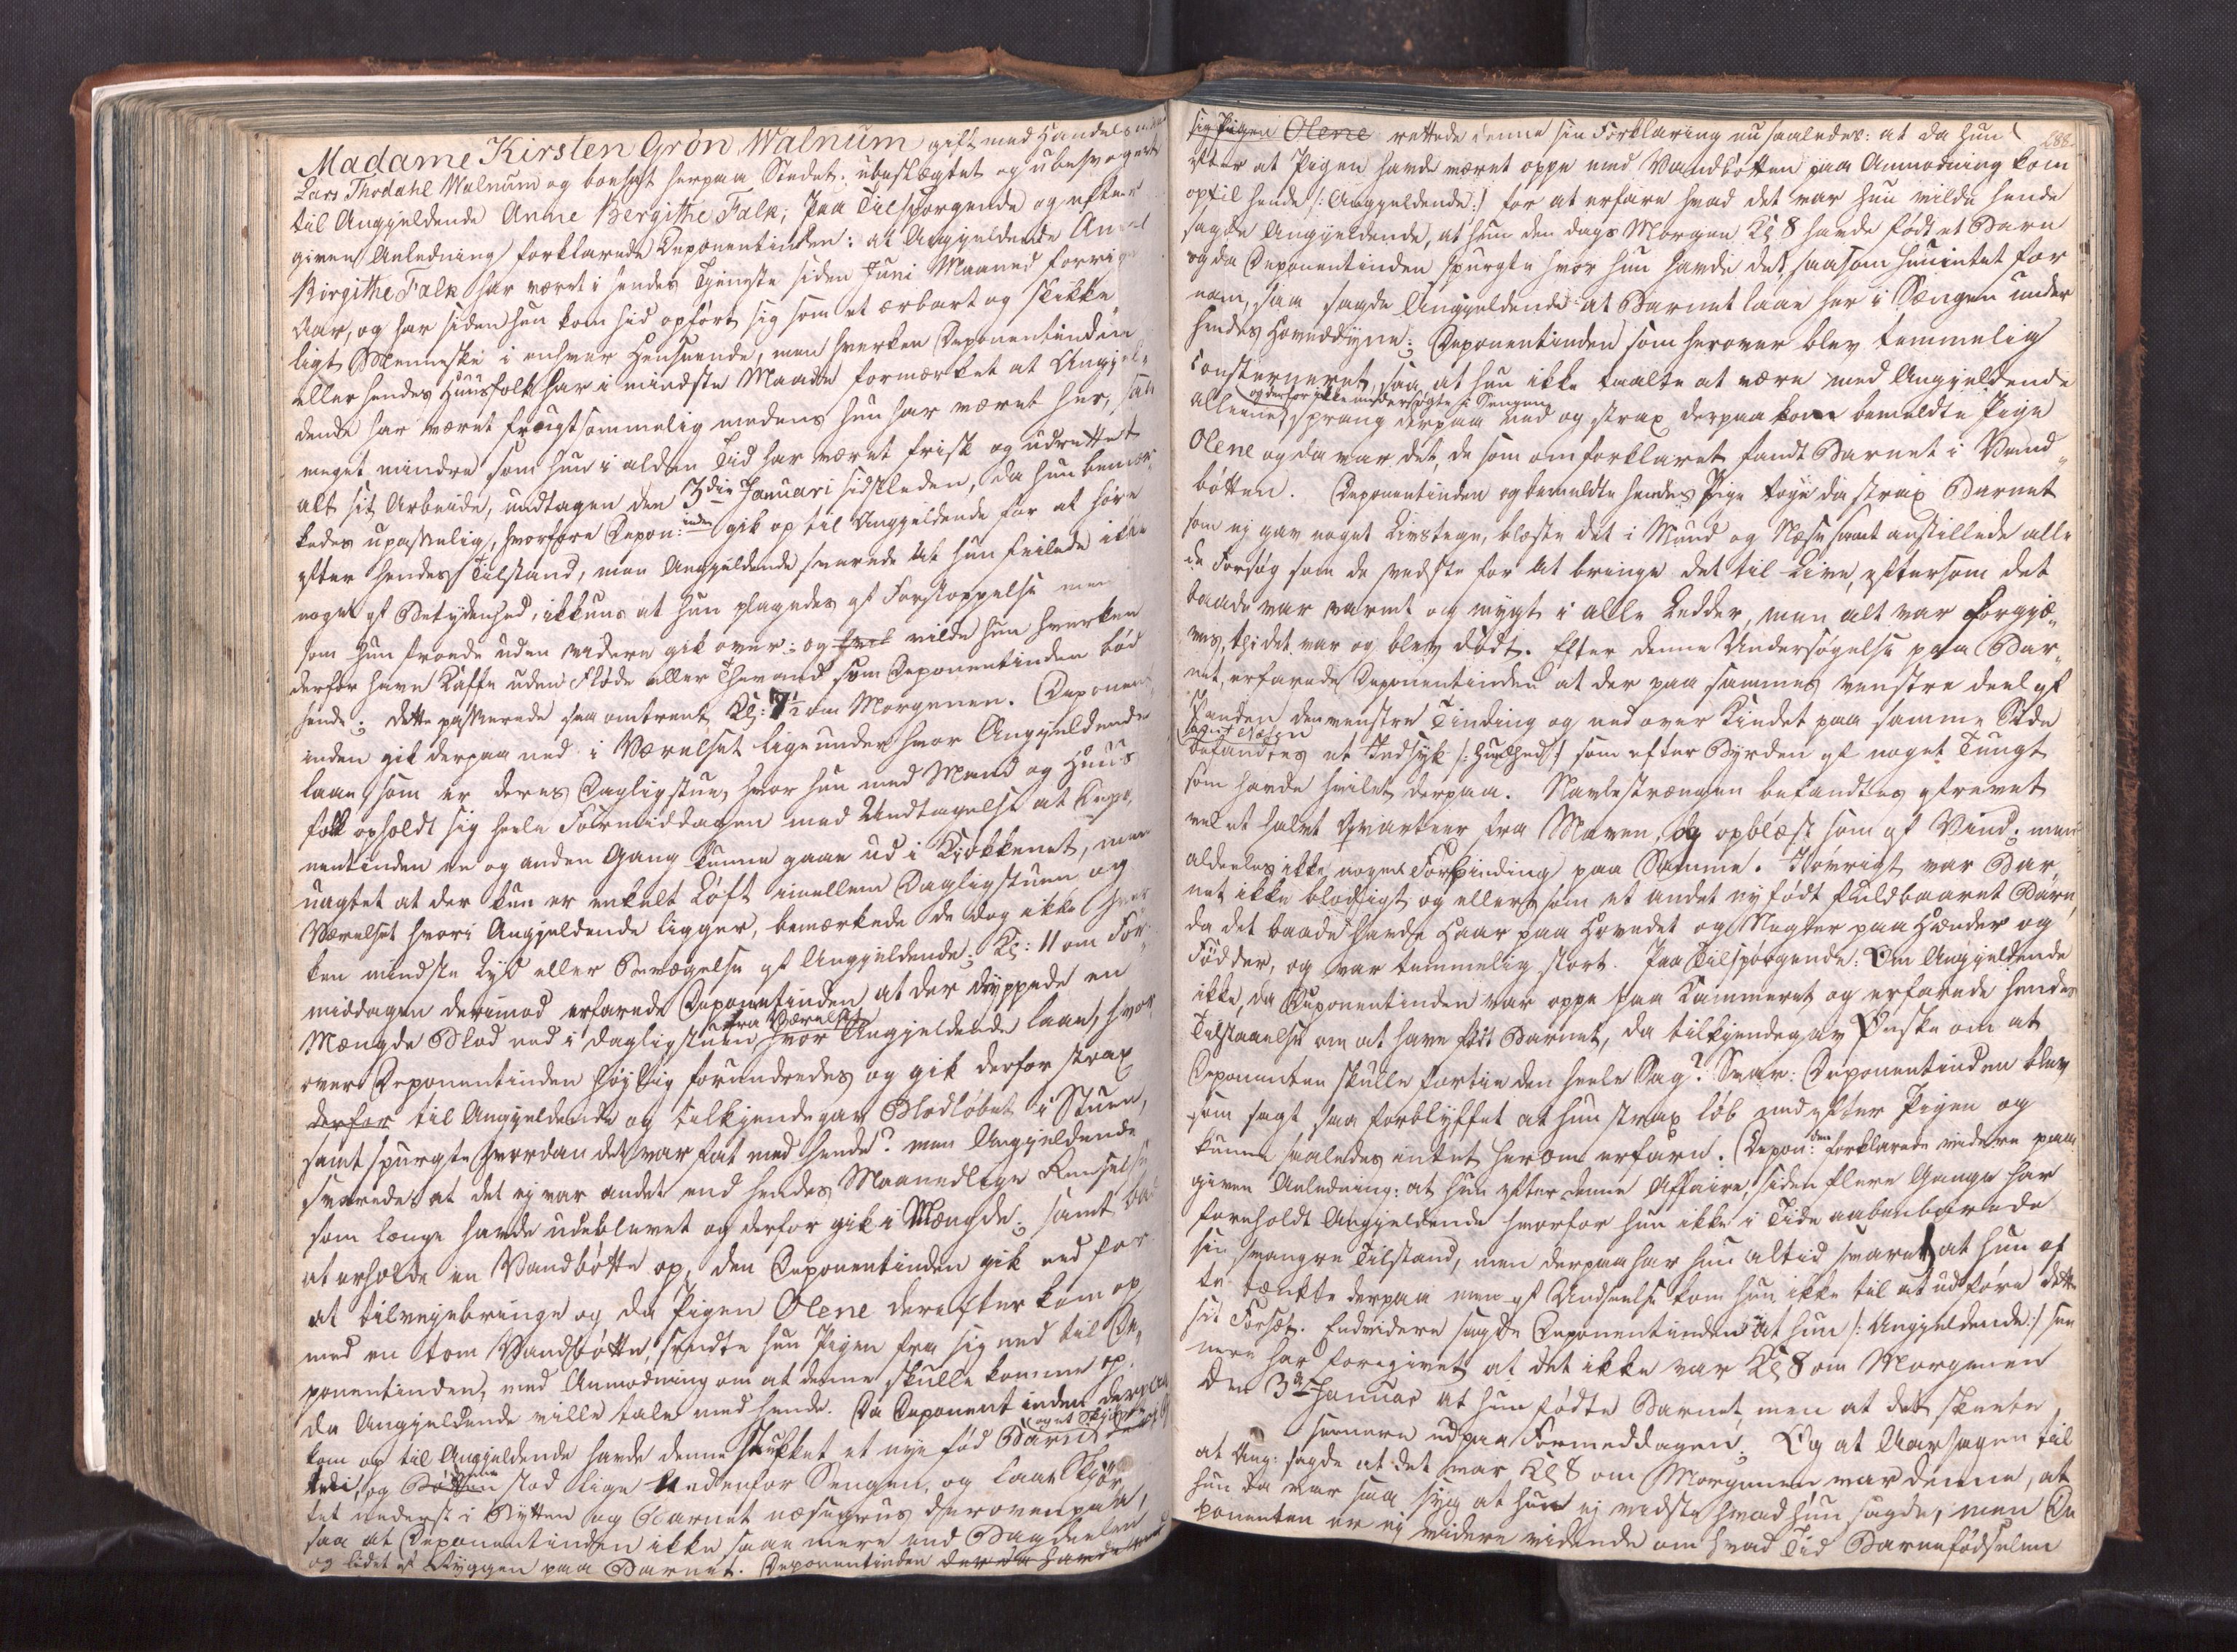 Madame Kirsten Grön Walnum gift med Handelsmand
Lars Thodahl Walnum og boesat herpaa Stedet: ubeslægtet og ubesvogert
til Angjeldende Anne Bergithe Falk; Paa Tilspørgende og efter
given Anledning forklarede Deponentinden: at Angjeldende Anne
Birgithe Falk har været i hendes Tjeneste siden Juni Maaned forrige
Aar, og har siden hun kom hid opført sig som et ærbart og skikke¬
ligt Menneske i enhver Henseende, men hverken Deponentinden
eller hendes Huusfolk har i mindste Maade formærket at Angjel¬
dende har været frugtsommelig medens hun har været her, saa
meget mindre som hun i al den Tid har været frisk og udrettet
alt sit Arbeide, undtagen den 3die Januari sidstleden, da hun bemær¬
kedes upasselig, hvorfore Depon:inden gik op til Angjeldende for at høre
efter hendes Tilstand, men Angjeldende svarede at hun feilede ikke
noget af Betydenhed, ikkuns at hun plagedes af Forstoppelse men
som hun troede uden videre gik over: og vilde hun hverken
derfor have Kaffe uden Fløde eller Thevand som Deponentinden bød
hende; dette passerede saa omtrent Kl: 7½ om Morgenen. Deponent¬
inden gik derpaa ned i Værelset lige under hvor Angjeldende
laae, som er deres Dagligstue, hvor hun med Mand og Huus
folk opholdt sig heele Formiddagen med Undtagelse at Depo¬
nentinden en og anden Gang kunne gaae ud i Kjøkkenet, men
uagtet at der kun er enkelt Loft imellem Dagligstuen og
Værelset hvori Angjeldende ligger, bemærkede de dog ikke hver
ken mindste Lyd eller Bevægelse af Angjeldende; Kl: 11 om For¬
middagen derimod erfarede Deponentinden at der dryppede en
Mængde Blod ned i Dagligstuen fra Værelset hvor Angjeldende laae, hvor
over Deponentinden høyligt forundredes og gik derfor strax
derfor til Angjeldende og tilkjendegav Blodløbet i Stuen,
samt spurgte hvordan det var fat med hende? men Angjeldende
svarede: at det ej var andet end hendes Maanedlige Renselse
som længe havde udeblevet og derfor gik i Mængde; samt bad
at erholde en Vandbøtte op, den Deponentinden gik ned for
at tilveyebringe og da Pigen Olene derefter kom op
med en tom Vandbøtte, sendte hun Pigen fra sig ned til De¬
ponentinden, med Anmodning om at denne skulle komme op
da Angjeldende ville tale med hende. Da Deponentinden derpaa
kom op til Angjeldende havde denne stukket et nye fød Barn og et Skjørt
og Bøtten stod lige nedenfor Sengen, og laae Skjør
tet nederst i Bytten og Barnet næsegruus derovenpaa,
saa at Deponentinden ikke saae mere end Bagdeelen
og lidet af Ryggen paa Barnet. Deponentinden der da havde
sig Pigen Olene rettede denne sin Forklaring nu saaledes: at da hun
688.
efter at Pigen havde været oppe med Vandbøtten paa Anmodning kom
op til hende /: Angjeldende :/ for at erfare hvad det var hun vilde hende
sagde Angjeldende, at hun den dags Morgen Kl 8 havde født et Barn
og da Deponentinden spurgte hvor hun havde det, saasom hun intet for
nam, saa sagde Angjeldende at Barnet laae her i Sengen under
hendes Hoveddyne; Deponentinden som herover blev temmelig
consterneret, saa at hun ikke taalte at være med Angjeldende
og derfor ikke undersøgte i Sengen
alleene, sprang derpaa ned og strax derpaa kom bemeldte Pige
Olene og da var det, de som omforklaret fandt Barnet i Vand¬
bøtten. Deponentinden og bemeldte hendes Pige toge da strax Barnet
som ej gav noget Livstegn, blæste det i Mund og Næse samt anstillede alle
de Forsøg som de vidste for at bringe det til Live, eftersom det
baade var varmt og mygt i alle Ledder, men alt var forgjæ¬
ves, thi det var og blev dødt. Efter denne Undersøgelse paa Bar¬
net, erfarede Deponentinden at der paa sammes venstre deel af
Panden den venstre Tinding og ned over Kindet paa samme Side
samt Næsen
befandtes et Indtryk /: Huulhed :/ som efter Byrden af noget Tungt
som havde hvilet derpaa. Navlestrængen befandtes afrevet
vel et halvt Qvarteer fra Maven, og opblæst som af Vind; men
aldeeles ikke nogen Forbinding paa Samme. Iøvrigt var Bar¬
net ikke blodigt og ellers som et andet nyfødt fuldbaaret Barn,
da det baade havde Haar paa Hovedet og Negler paa Hænder og
Fødder, og var temmelig stort. Paa Tilspørgende: Om Angjeldende
ikke, da Deponentinden var oppe paa Kammeret og erfarede hendes
Tilstaaelse om at have født Barnet, da tilkjendegav Ønske om at
Deponenten skulle fortie den heele Sag? Svar: Deponentinden blev
som sagt saa forblyffet at hun strax løb ned efter Pigen og
kunne saaledes intet herom erfare. Depon:den forklarede videre paa
given Anledning: at hun efter denne Affaire, siden flere Gange har
foreholdt Angjeldende hvorfor hun ikke i Tide aabenbarede
sin svangre Tilstand, men derpaa har hun altid svaret at hun of
te tænkte derpaa men af Undseelse kom hun ikke til at udføre dette
sit Forsæt. Endvidere sagde Deponentinden at hun /: Angjeldende :/ see
nere har foregivet at det ikke var Kl 8 om Morgenen
den 3de Januar at hun fødte Barnet, men at det skeede
seenere ud paa Formeddagen; Og at Aarsagen til
at Ang: sagde at det var Kl 8 om Morgenen var denne, at
hun da var saa syg at hun ej vidste hvad hun sagde, men De
ponenten er ej videre vidende om hvad Tid Barnefødselen